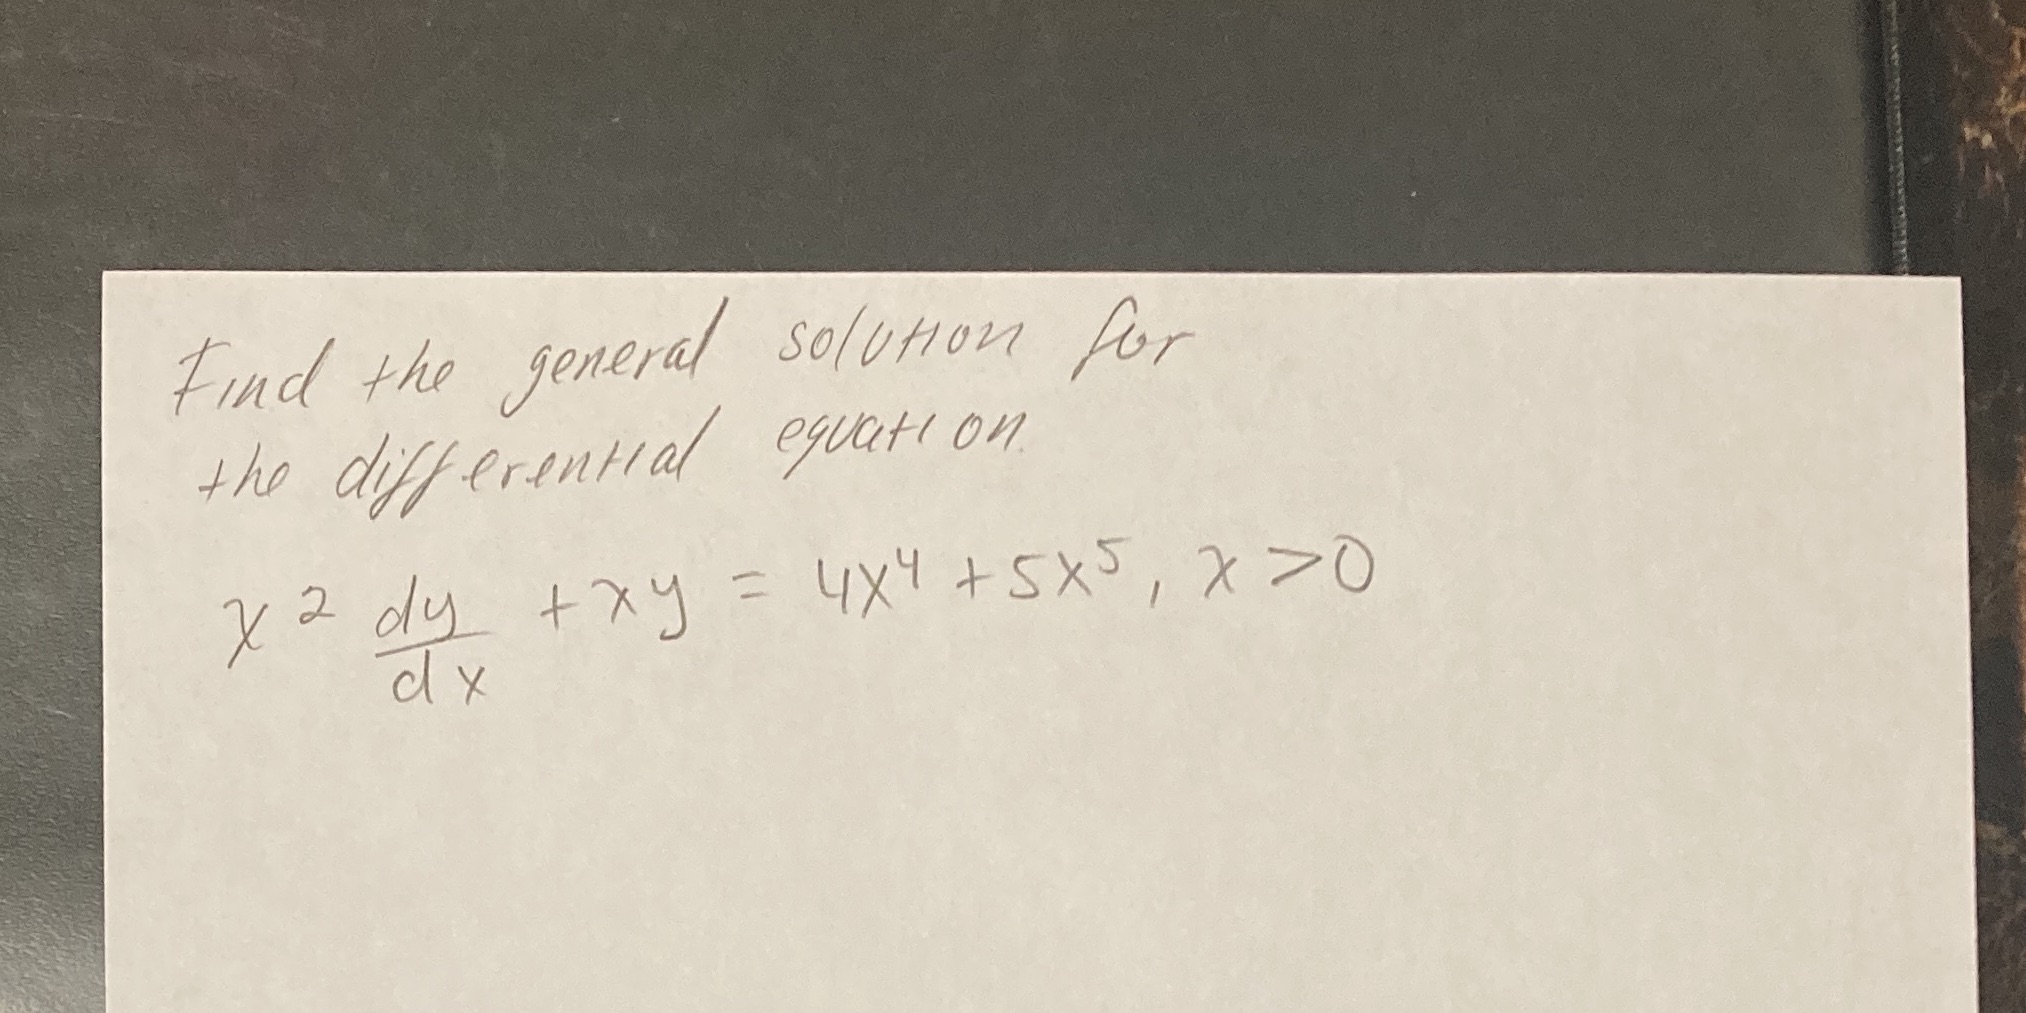 Find the general solution for
the differential equation.
x² dy/dx + xy = 4x⁴ + 5x⁵, x > 0